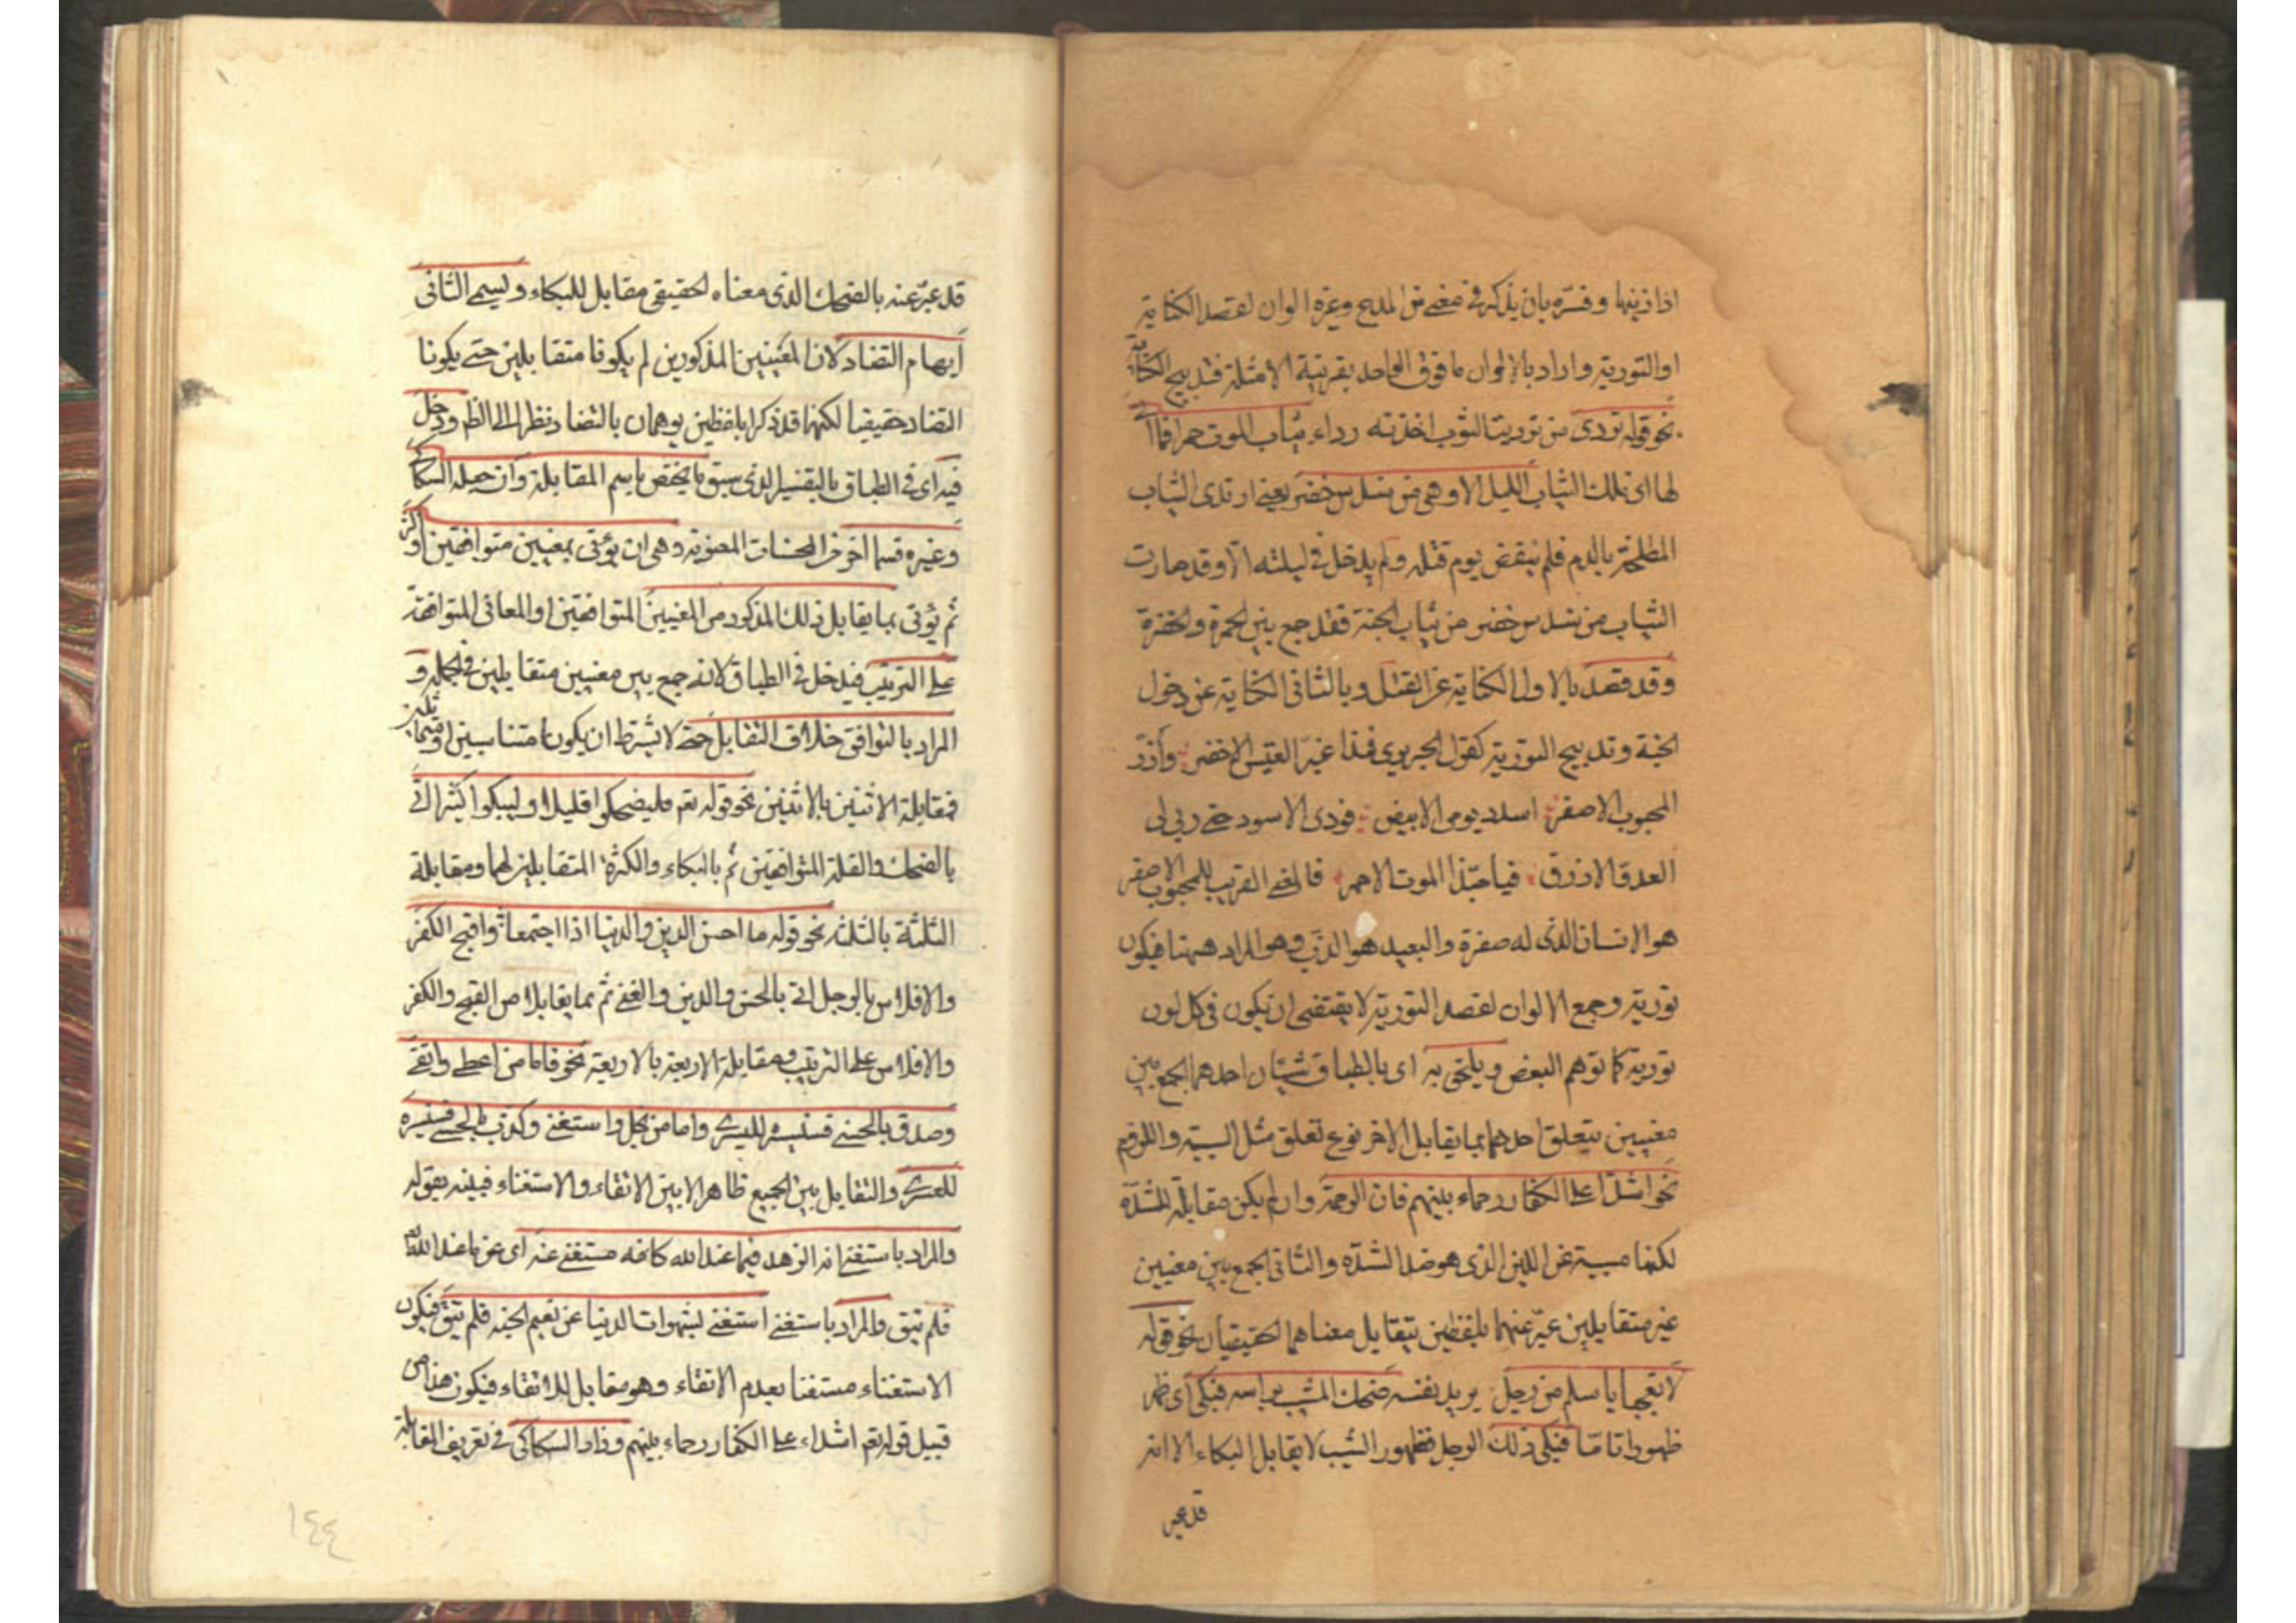 اذا زينها وفسّره بان يذكر فى معنى من المدح وغيره الوان لقصد الكناية
او التورية واراد بالالوان ما فوق الواحد بقرينة الامثلة فتدبيج الكناية
نحو قوله تردى من تردیت الثوب اخذته رداء ثياب الموت حمرا فما اتى
لها اى لتلك الثياب الليل الا وهى من سندس خضر يعنى ارتدى الثياب
الملطخة بالدم فلم ينقض يوم قتله ولم يدخل فى ليلته الّا وقد صارت
الثياب من سندس خضر من ثياب الجنة فقد جمع بين الحمرة والخضرة
وقد قصد بالاول الكناية عن القتل وبالثانى الكناية عن دخول
الجنة وتدبيج التورية كقول الحريرى فمذ اغبرّ العيش الاخضر وازوّر
المحبوب الاصفر اسود يومى الابيض فودى الاسود حتى رثى لى
العدو الازرق فيا حبّذا الموت الاحمر فالمعنى القريب للمحبوب الاصفر
هو الانسان الذى له صفرة والبعيد هو الذهب وهو المراد ههنا فيكون
تورية وجمع الالوان لقصد التورية لا يقتضى ان يكون فى كل لون
تورية كما توهم البعض ويلحق به اى بالطباق شيئان احدهما الجمع بين
معنيين يتعلق احدهما بما يقابل الاخر نوع تعلق مثل السببية واللزوم
نحو اشداء على الكفار رحماء بينهم فان الرحمة وان لم يكن مقابلة للشدّة
لكنها مسببة عن اللين الذى هو ضد الشدّة والثانى الجمع بين معنيين
غير متقابلين عبّر عنهما بلفظين يتقابل معناهما الحقيقيان نحو قوله
لا تعجبى يا سلم من رجل يريد نفسه ضحك المشيب براسه فبكى اى ظهر
ظهورا تامّا فبكى ذلك الرجل فظهور الشيب لا يقابل البكاء الا انه
قد عبر
قد عبّر عنه بالضحك الذى معناه الحقيقى مقابل للبكاء ويسمى الثانى
ايهام التضاد لان المعنيين المذكورين لم يكونا متقابلين حتى يكونا
التضاد حقيقيا لكنهما قد ذكرا بلفظين يوهمان بالتضاد نظرا الى الظ ودخل
فيه اى فى الطباق بالتفسير الذى سبق ما يختص باسم المقابلة وان جعله السكاكى
وغيره قسما اخر من المحسنات المعنوية وهى ان يؤتى بمعنيين متوافقين او اكثر
ثم يؤتى بما يقابل ذلك المذكور من المعنيين المتوافقين او المعانى المتوافقة
على الترتيب فيدخل فى الطباق لانه جمع بين معنيين متقابلين فى الجملة و
المراد بالتوافق خلاف التقابل حتى لا يشترط ان يكونا متناسبين او متماثلين
فمقابلة الاثنين بالاثنين نحو قوله تعم فليضحكوا قليلا وليبكوا كثيرا اتى
بالضحك والقلة المتوافقين ثم بالبكاء والكثرة المتقابلين لهما ومقابلة
الثلثة بالثلثة نحو قوله ما احسن الدين والدنيا اذا اجتمعا واقبح الكفر
والافلاس بالرجل اتى بالحسن والدين والغنى ثم بما يقابلها من القبح والكفر
والافلاس على الترتيب ومقابلة الاربعة بالاربعة نحو فاما من اعطى واتقى
وصدق بالحسنى فسنيسره لليسرى واما من بخل واستغنى وكذب بالحسنى فسنيسره
للعسرى والتقابل بين الجميع ظاهر الا بين الاتقاء والاستغناء فبينه بقوله
والمراد باستغنى انه الزهد فيما عند الله كانه مستغنى عنه اى عن ما عند الله
فلم يتق والمراد باستغنى استغنى بشهوات الدنيا عن نعيم الجنه فلم يتق فيكون
الاستغناء مستتبعا لعدم الاتقاء وهو مقابل للاتقاء فيكون هذا من
قبيل قوله تعم اشداء على الكفار رحماء بينهم وزاد السكاكى فى تعريف المقابلة
١٤٤